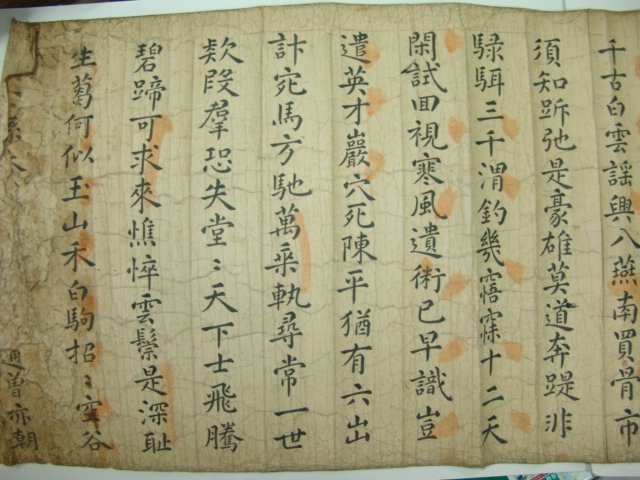 千古白雲謠興八燕南買骨市
須知跅弛是豪雄莫道奔踶非
騄駬三千渭釣幾寤寐十二天
閑試回視寒風遺術已早識豈
遣英才巖穴死陳平猶有六出
計宛馬方馳萬乘軌尋常一世
欺段羣恐失堂〻天下士飛騰
碧蹄可求來憔悴雲鬃是深恥
生蒭何似玉山禾白駒招〻空谷